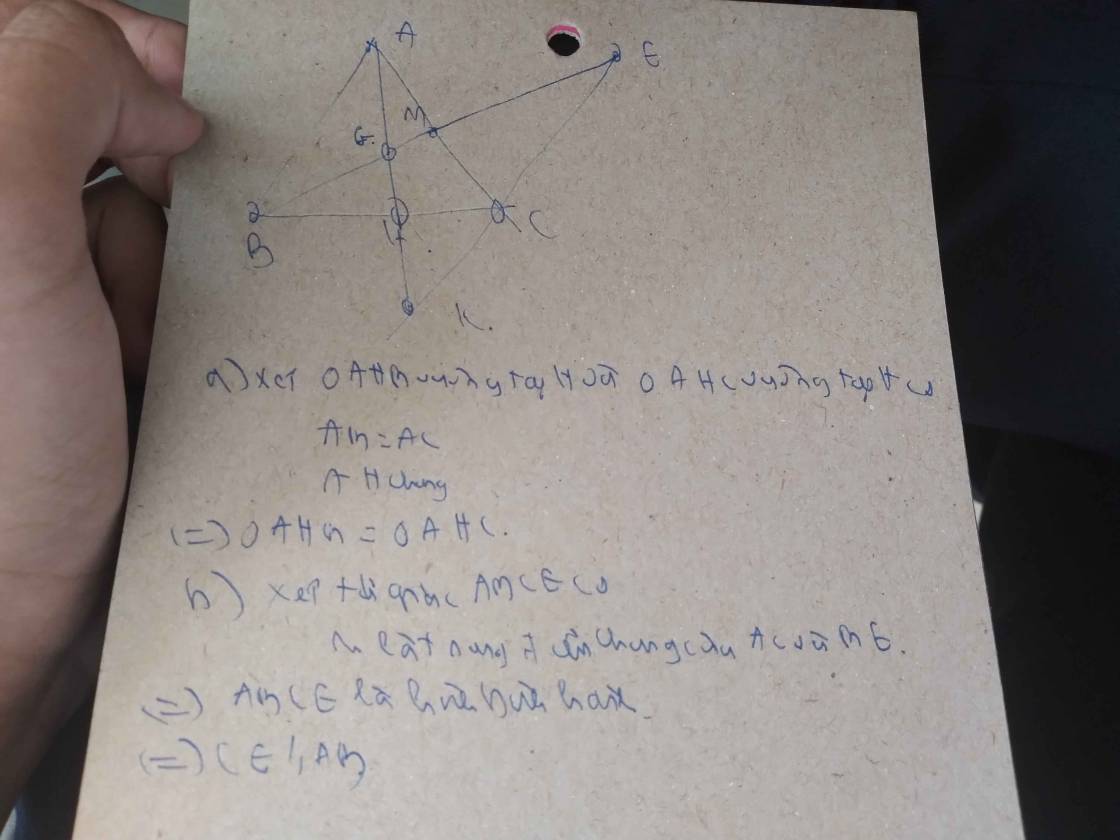 A
E
M
G.
B
H
C
K.
a) xét Δ AHB vuông tại H và Δ AHC vuông tại H có
AB = AC
AH chung
(=) Δ AHB = Δ AHC.
b) xét tứ giác ABCE có
M là trung điểm chung của AC và BE.
(=) ABCE là hình bình hành
(=) CE // AB